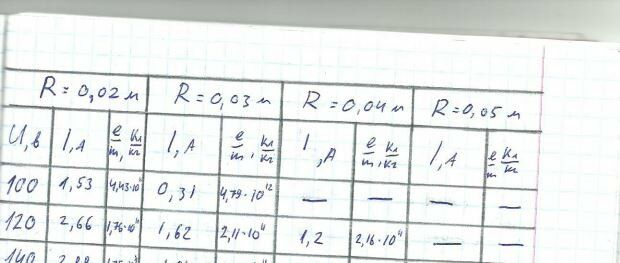 R = 0,02 м R = 0,03 м R = 0,04 м R = 0,05 м
U,в I,А e/m, Кл/кг I,А e/m, Кл/кг I,А e/m, Кл/кг I,А e/m Кл/кг
100 1,53 4,43·10¹¹ 0,31 4,79·10¹² — — — —
120 2,66 1,76·10¹¹ 1,62 2,11·10¹¹ 1,2 2,16·10¹¹ — —
140